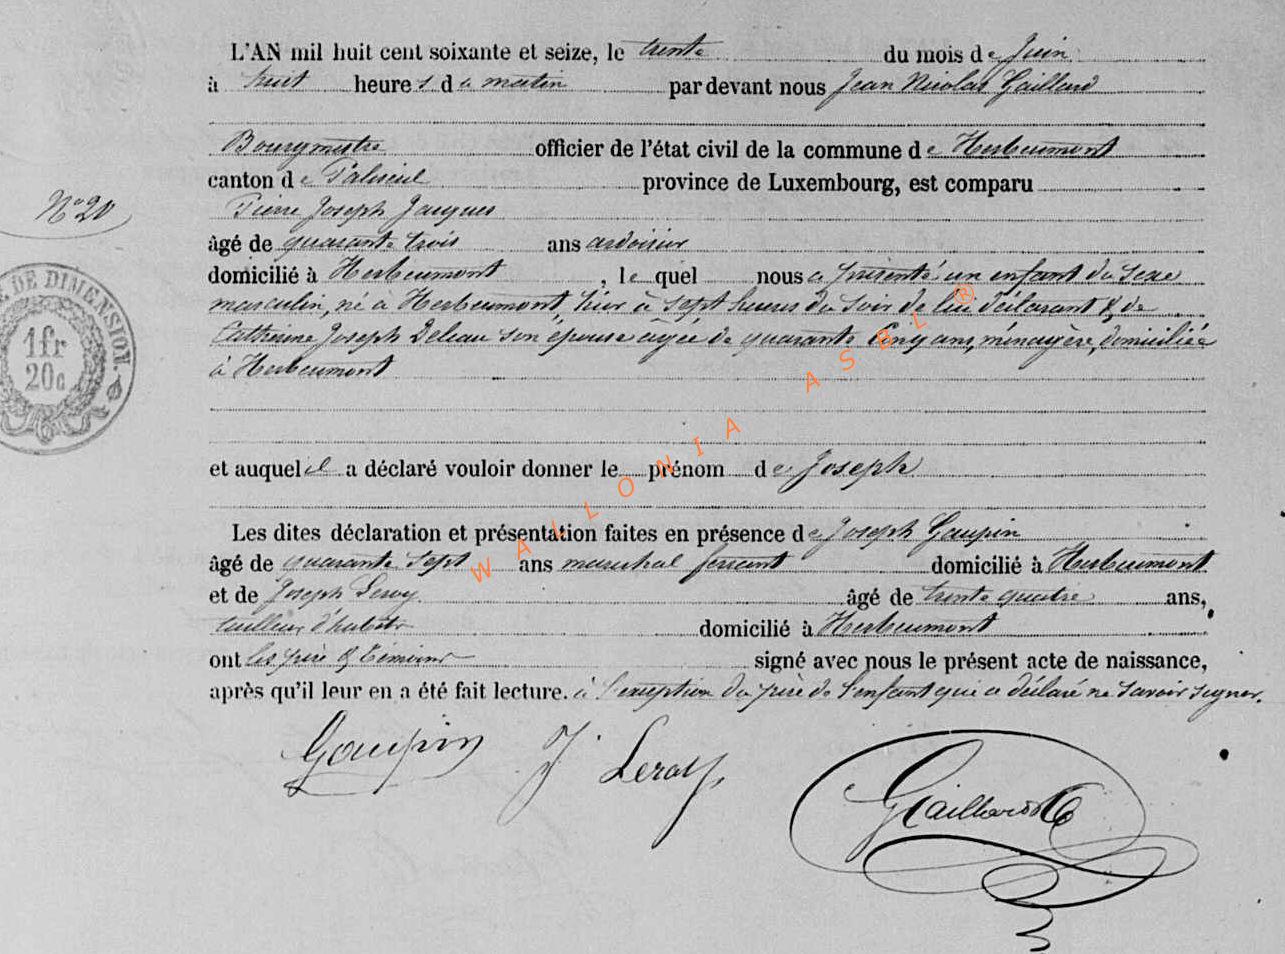 L'AN mil huit cent soixante et seize, le trente du mois de Juin
à huit heures du matin par devant nous Jean Nicolas Gaillard
Bourgmestre officier de l'état civil de la commune de Herbeumont
canton de Paliseul province de Luxembourg, est comparu
Pierre Joseph Jacques
N° 20
âgé de quarante trois ans ardoisier
domicilié à Herbeumont, lequel nous a présenté un enfant du sexe
masculin, né à Herbeumont, hier à sept heures du soir de lui déclarant & de
Catherine Joseph Deleau son épouse âgée de quarante cinq ans, ménagère, domiciliée
à Herbeumont
DE DIMENSION.
1fr
20c
et auquel il a déclaré vouloir donner le prénom de Joseph
Les dites déclaration et présentation faites en présence de Joseph Gaupin
âgé de quarante sept ans maréchal ferrant domicilié à Herbeumont
et de Joseph Leroy âgé de trente quatre ans,
tailleur d'habits domicilié à Herbeumont
ont les père & témoins signé avec nous le présent acte de naissance,
après qu'il leur en a été fait lecture. à l'exception du père de l'enfant qui a déclaré ne savoir signer.
Gaupin J. Leroy Gaillard
WALLONIA ASBL ®